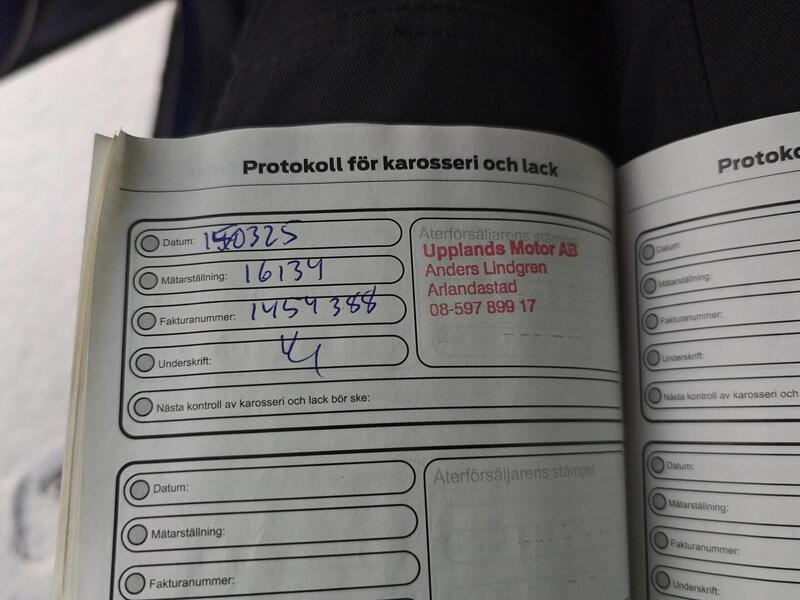 Protokoll för karosseri och lack
Datum: 150325
Mätarställning: 16134
Fakturanummer: 1454388
Underskrift:
Nästa kontroll av karosseri och lack bör ske:
Återförsäljarens stämpel
Upplands Motor AB
Anders Lindgren
Arlandastad
08-597 899 17
Datum:
Mätarställning:
Fakturanummer:
Återförsäljarens stämpel
Protoko
Datum:
Mätarställning:
Fakturanummer:
Underskrift:
Nästa kontroll av karosseri och
Datum:
Mätarställning:
Fakturanummer:
Underskrift: